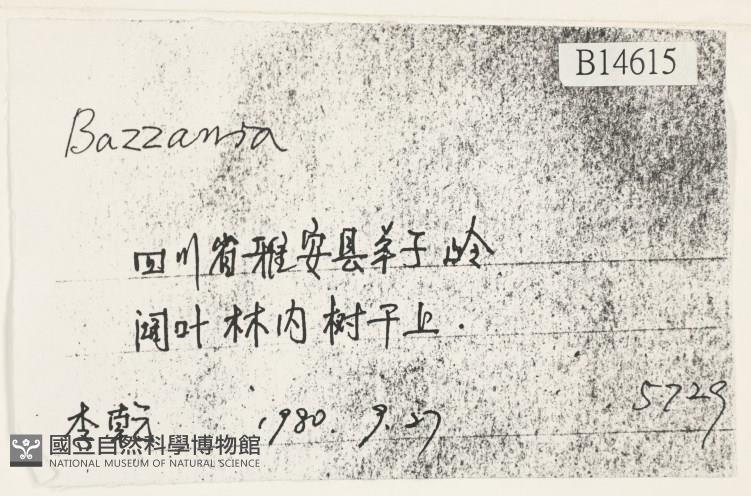 B14615
Bazzania
四川省雅安县羊子岭
阔叶林内树干上.
李乾 1980.9.27
5729
國立自然科學博物館
NATIONAL MUSEUM OF NATURAL SCIENCE